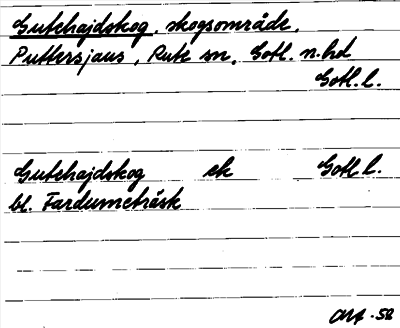 Gutehajdskog, skogsområde,
Puttersjaus, Rute sn, Gotl. n. hd
Gotl. l.
Gutehajdskog ek Gotl. l.
bl. Fardumeträsk
58